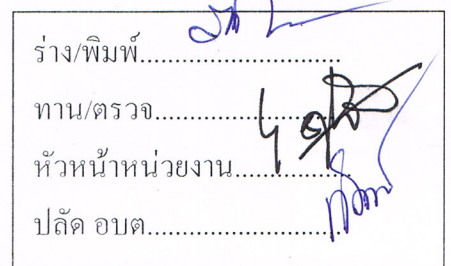 ร่าง/พิมพ์..............................
ทาน/ตรวจ............................
หัวหน้าหน่วยงาน.................
ปลัด อบต.............................